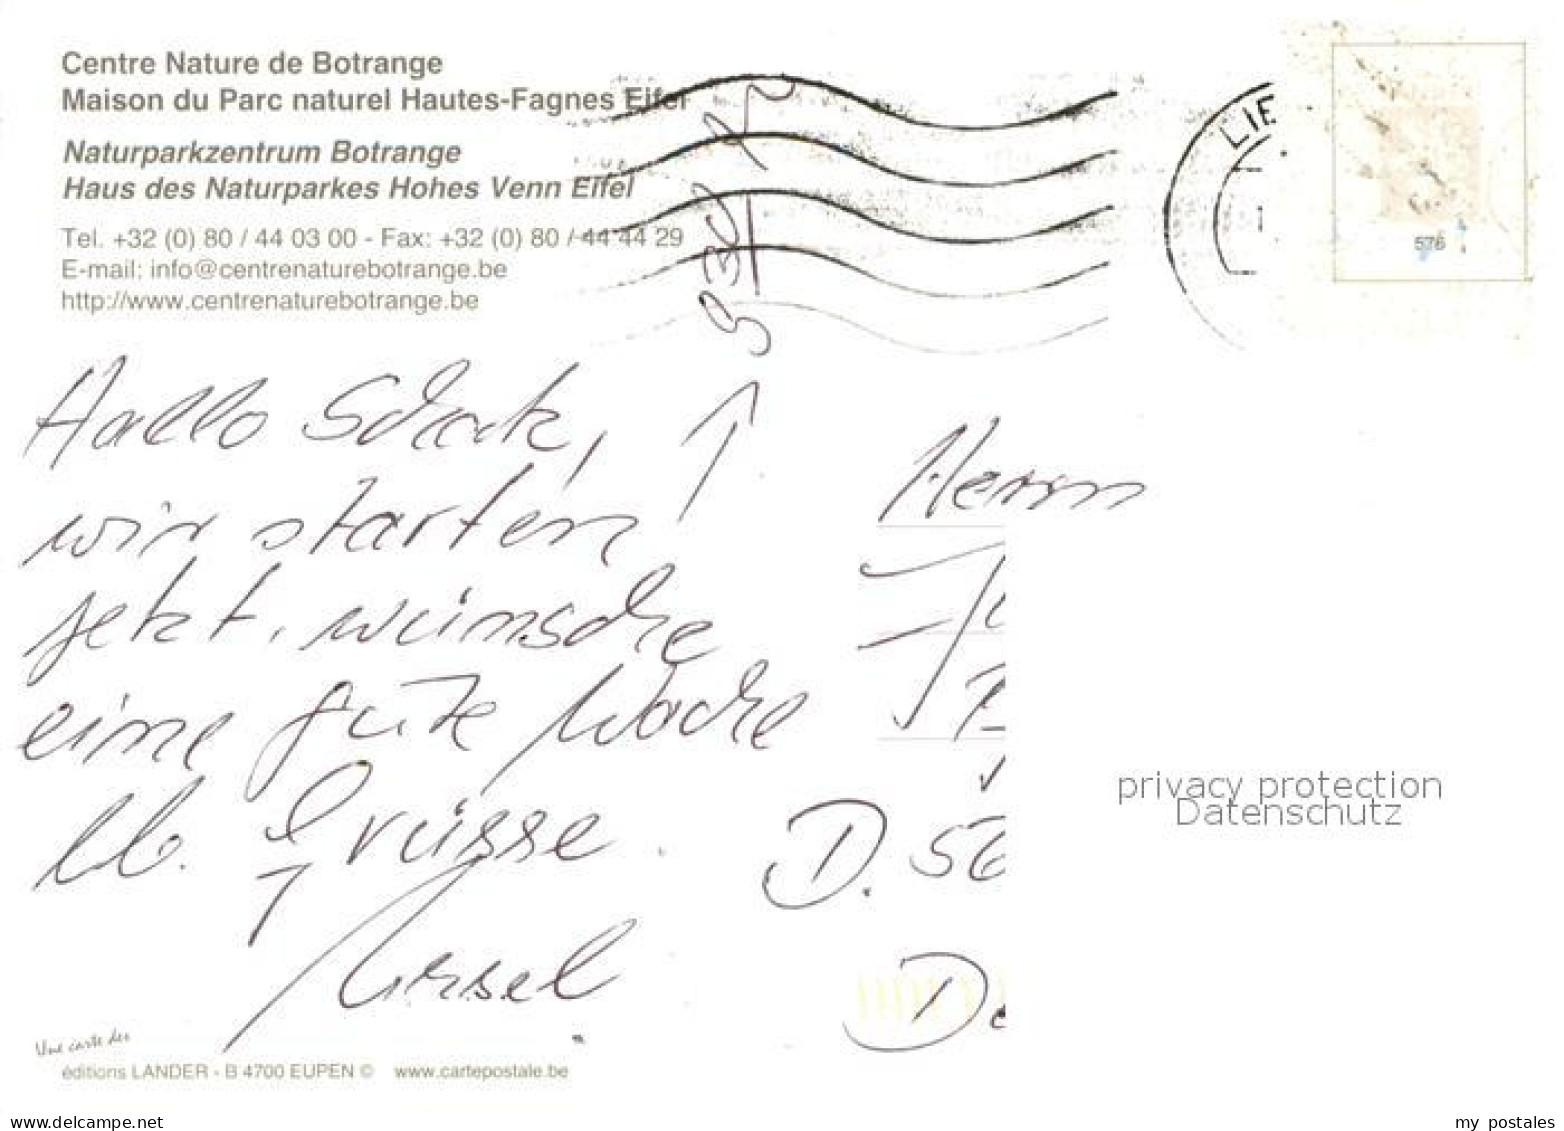 Centre Nature de Botrange
Maison du Parc naturel Hautes-Fagnes Eifel
Naturparkzentrum Botrange
Haus des Naturparkes Hohes Venn Eifel
Tel. +32 (0) 80 / 44 03 00 - Fax: +32 (0) 80 / 44 44 29
E-mail: info@centrenaturebotrange.be
http://www.centrenaturebotrange.be
LIE
576
Hallo Schatz,
wir starten
jetzt, wünsche
eine gute Woche
lb. Grüsse
Ursel
Herrn
D. 56
De
privacy protection
Datenschutz
Une carte des
éditions LANDER - B 4700 EUPEN © www.cartepostale.be
www.delcampe.net
my postales